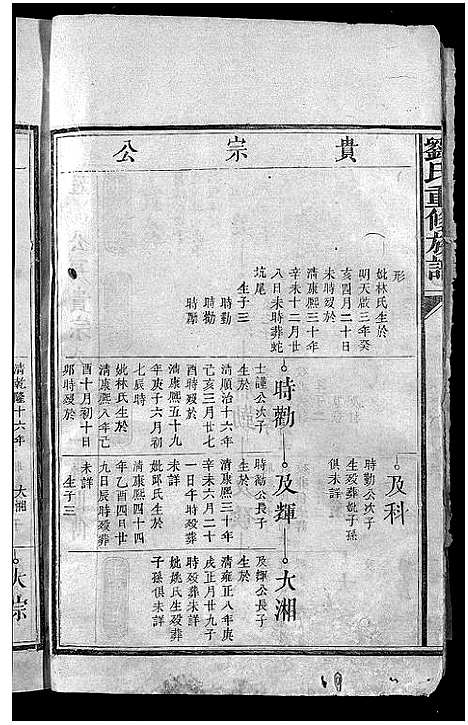 劉氏重修族譜
貴宗公
形
妣林氏生於
明天啟三年癸
亥四月二十日
未時歿於
清康熙三十年
辛未十二月廿
八日未時葬蛇
坑尾
生子三
時勤
時勸
時勵
時勸
士謹公次子
生於
清順治十六年
己亥三月廿七
酉時歿於
清康熙五十九
年庚子六月初
七辰時
妣林氏生於
清康熙八年己
酉十月初十日
卯時歿於
清乾隆十六年
及科
時勤公次子
生歿葬妣子孫
俱未詳
及輝
時勸公長子
生於
清康熙三十年
辛未六月二十
一日午時歿葬
未詳
妣邱氏生於
清康熙四十四
年乙酉四月廿
九日辰時歿葬
未詳
生子三
大湘
大湘
及輝公長子
生於
清雍正八年庚
戌正月廿九子
時歿葬未詳
妣姚氏生歿葬
子孫俱未詳
大宗